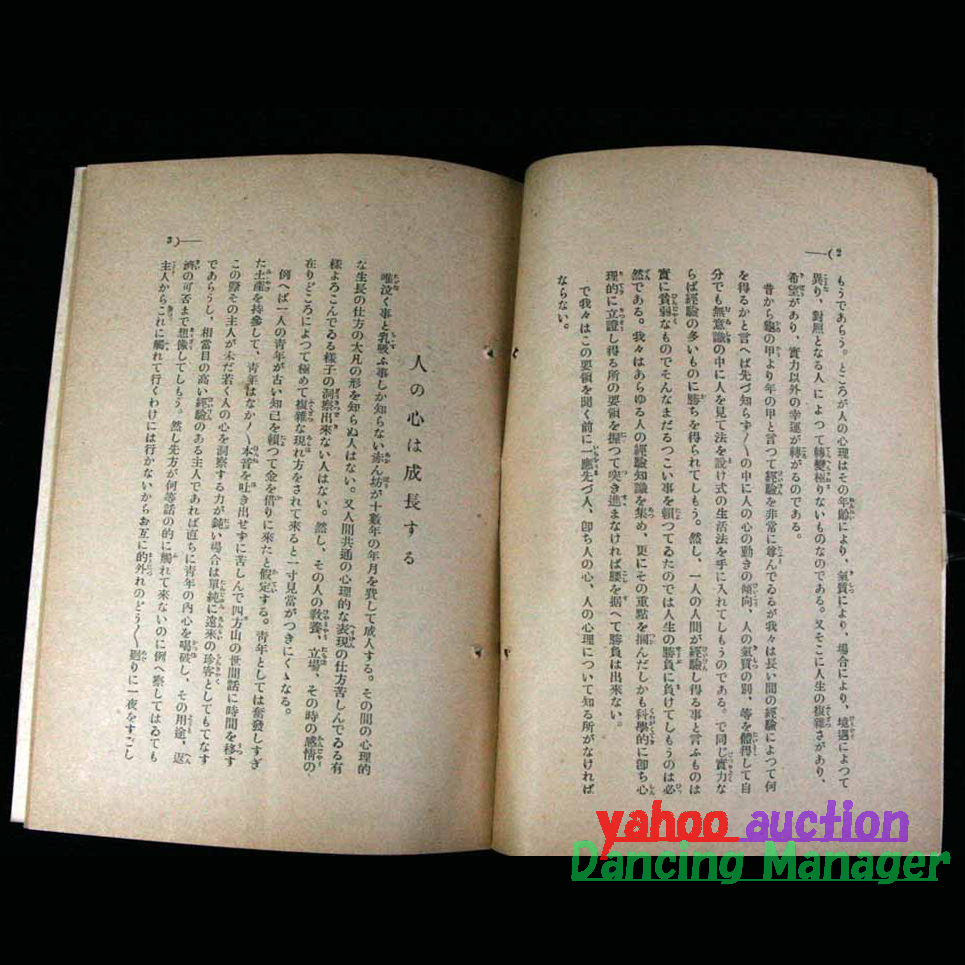 2
もうであらう。ところが人の心理はその年齡により、氣質により、場合により、境遇によつて
異り、對照となる人によつて轉變極りないものなのである。又そこに人生の複雜さがあり、
希望があり、實力以外の幸運が轉がるのである。
昔から龜の甲より年の甲と言つて經驗を非常に尊んでゐるが我々は長い間の經驗によつて何
を得るかと言へば先づ知らず〳〵の中に人の心の動きの傾向、人の氣質の別、等を體得して自
分でも無意識の中に人を見て法を設け式の生活法を手に入れてしもうのである。で同じ實力な
らば經驗の多いものに勝ちを得られてしもう。然し、一人の人間が經驗し得る事と言ふものは
實に貧弱なものでそんなまだるつこい事を賴つてゐたのでは人生の勝負に負けてしもうのは必
然である。我々はあらゆる人の經驗知識を集め、更にその重點を摑んだしかも科學的に卽ち心
理的に立證し得る所の要領を握つて突き進まなければ腰を据へて勝負は出來ない。
で我々はこの要領を聞く前に一應先づ人、卽ち人の心、人の心理について知る所がなければ
ならない。
3
人の心は成長する
唯泣く事と乳吸ふ事しか知らない赤ん坊が十數年の年月を費して成人する。その間の心理的
な生長の仕方の大凡の形を知らぬ人はない。又人間共通の心理的な表現の仕方苦しんでゐる有
樣よろこんでゐる樣子の洞察出來ない人はない。然し、その人の敎養、立場、その時の感情の
在りどころによつて極めて複雜な現れ方をされて來ると一寸見當がつきにくゝなる。
例へば一人の靑年が古い知己を賴つて金を借りに來たと假定する。靑年としては奮發しすぎ
た土産を持參して、靑年はなか〳〵本音を吐き出せずに苦しんで四方山の世間話に時間を移す
この際その主人が未だ若く人の心を洞察する力が鈍い場合は單純に遠來の珍客としてもてなす
であらうし、相當目の高い經驗のある主人であれば直ちに靑年の內心を喝破し、その用途、返
濟の可否まで想像してしもう。然し先方が何等話の的に觸れて來ないのに例へ察してはゐても
主人からこれに觸れて行くわけには行かないからお互に的外れのどう〳〵廻りに一夜をすごし
yahoo auction
Dancing Manager